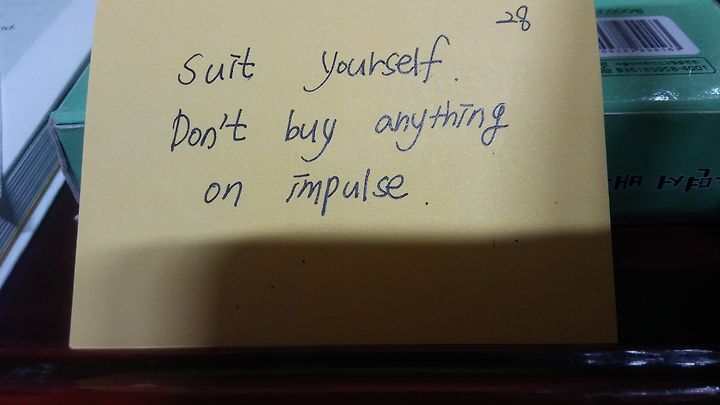 28
Suit yourself.
Don't buy anything
on impulse.
8361R5958-4001